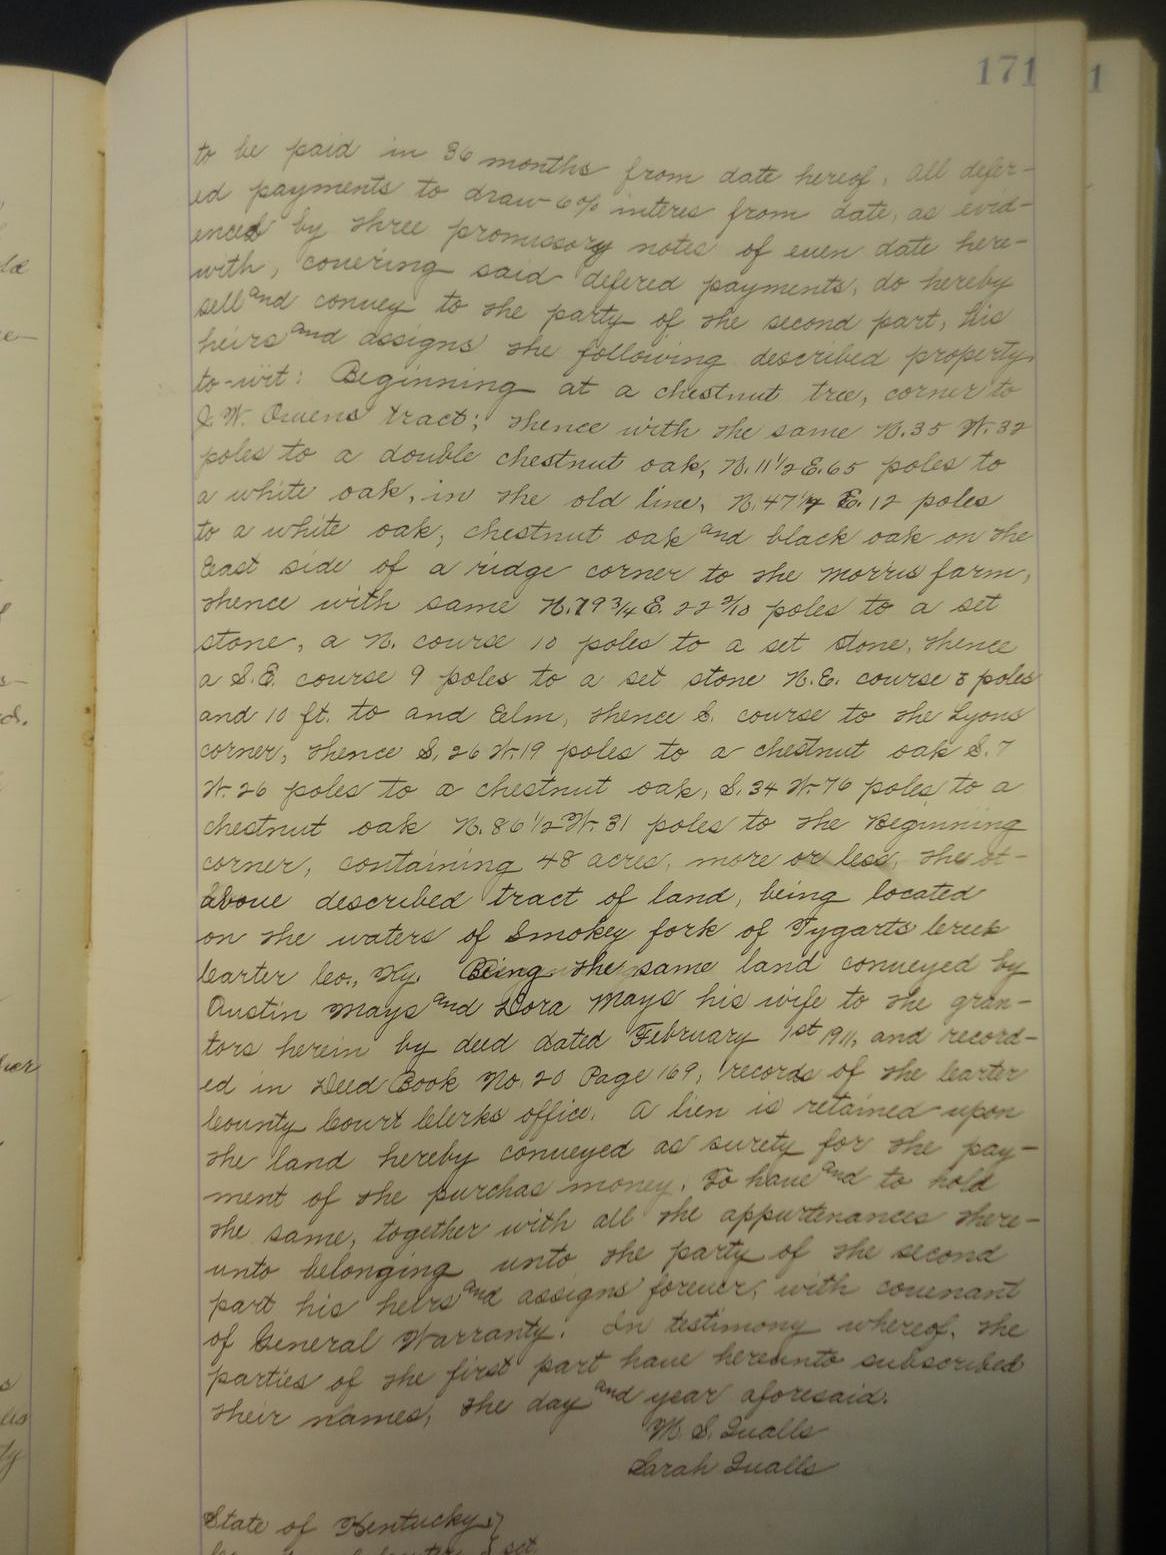 171
to be paid in 36 months from date hereof. All defer-
ed payments to draw 6% interes from date, as evid-
enced by three promissory notes of even date here-
with, covering said defered payments, do hereby
sell and convey to the party of the second part, his
heirs and assigns the following described property
to-wit: Beginning at a chestnut tree, corner to
J. W. Owens tract; thence with the same N. 35 W. 32
poles to a double chestnut oak, N. 11 1/2 E. 65 poles to
a white oak, in the old line, N. 47 1/4 E. 12 poles
to a white oak, chestnut oak and black oak on the
East side of a ridge corner to the Morris farm,
thence with same N. 79 3/4 E. 22 2/10 poles to a set
stone, a N. course 10 poles to a set stone, thence
a S.E. course 9 poles to a set stone N.E. course 8 poles
and 10 ft. to and Elm, thence E. course to the Lyons
corner, thence S. 26 W. 19 poles to a chestnut oak S. 7
W. 26 poles to a chestnut oak, S. 34 W. 76 poles to a
chestnut oak N. 86 1/2 W. 31 poles to the Beginning
corner, containing 48 acres, more or less, the
above described tract of land, being located
on the waters of Smokey fork of Tygarts Creek
Carter Co., Ky. Being the same land conveyed by
Austin Mays and Dora Mays his wife to the gran-
tors herein by deed dated February 1st 1911, and record-
ed in Deed Book No. 20 Page 169, records of the Carter
County Court Clerks office. A lien is retained upon
the land hereby conveyed as surety for the pay-
ment of the purchas money. To have and to hold
the same, together with all the appurtenances there-
unto belonging unto the party of the second
part his heirs and assigns forever, with covenant
of General Warranty. In testimony whereof, the
parties of the first part have hereunto subscribed
their names, the day and year aforesaid.
M. S. Qualls
Sarah Qualls
State of Kentucky }
set